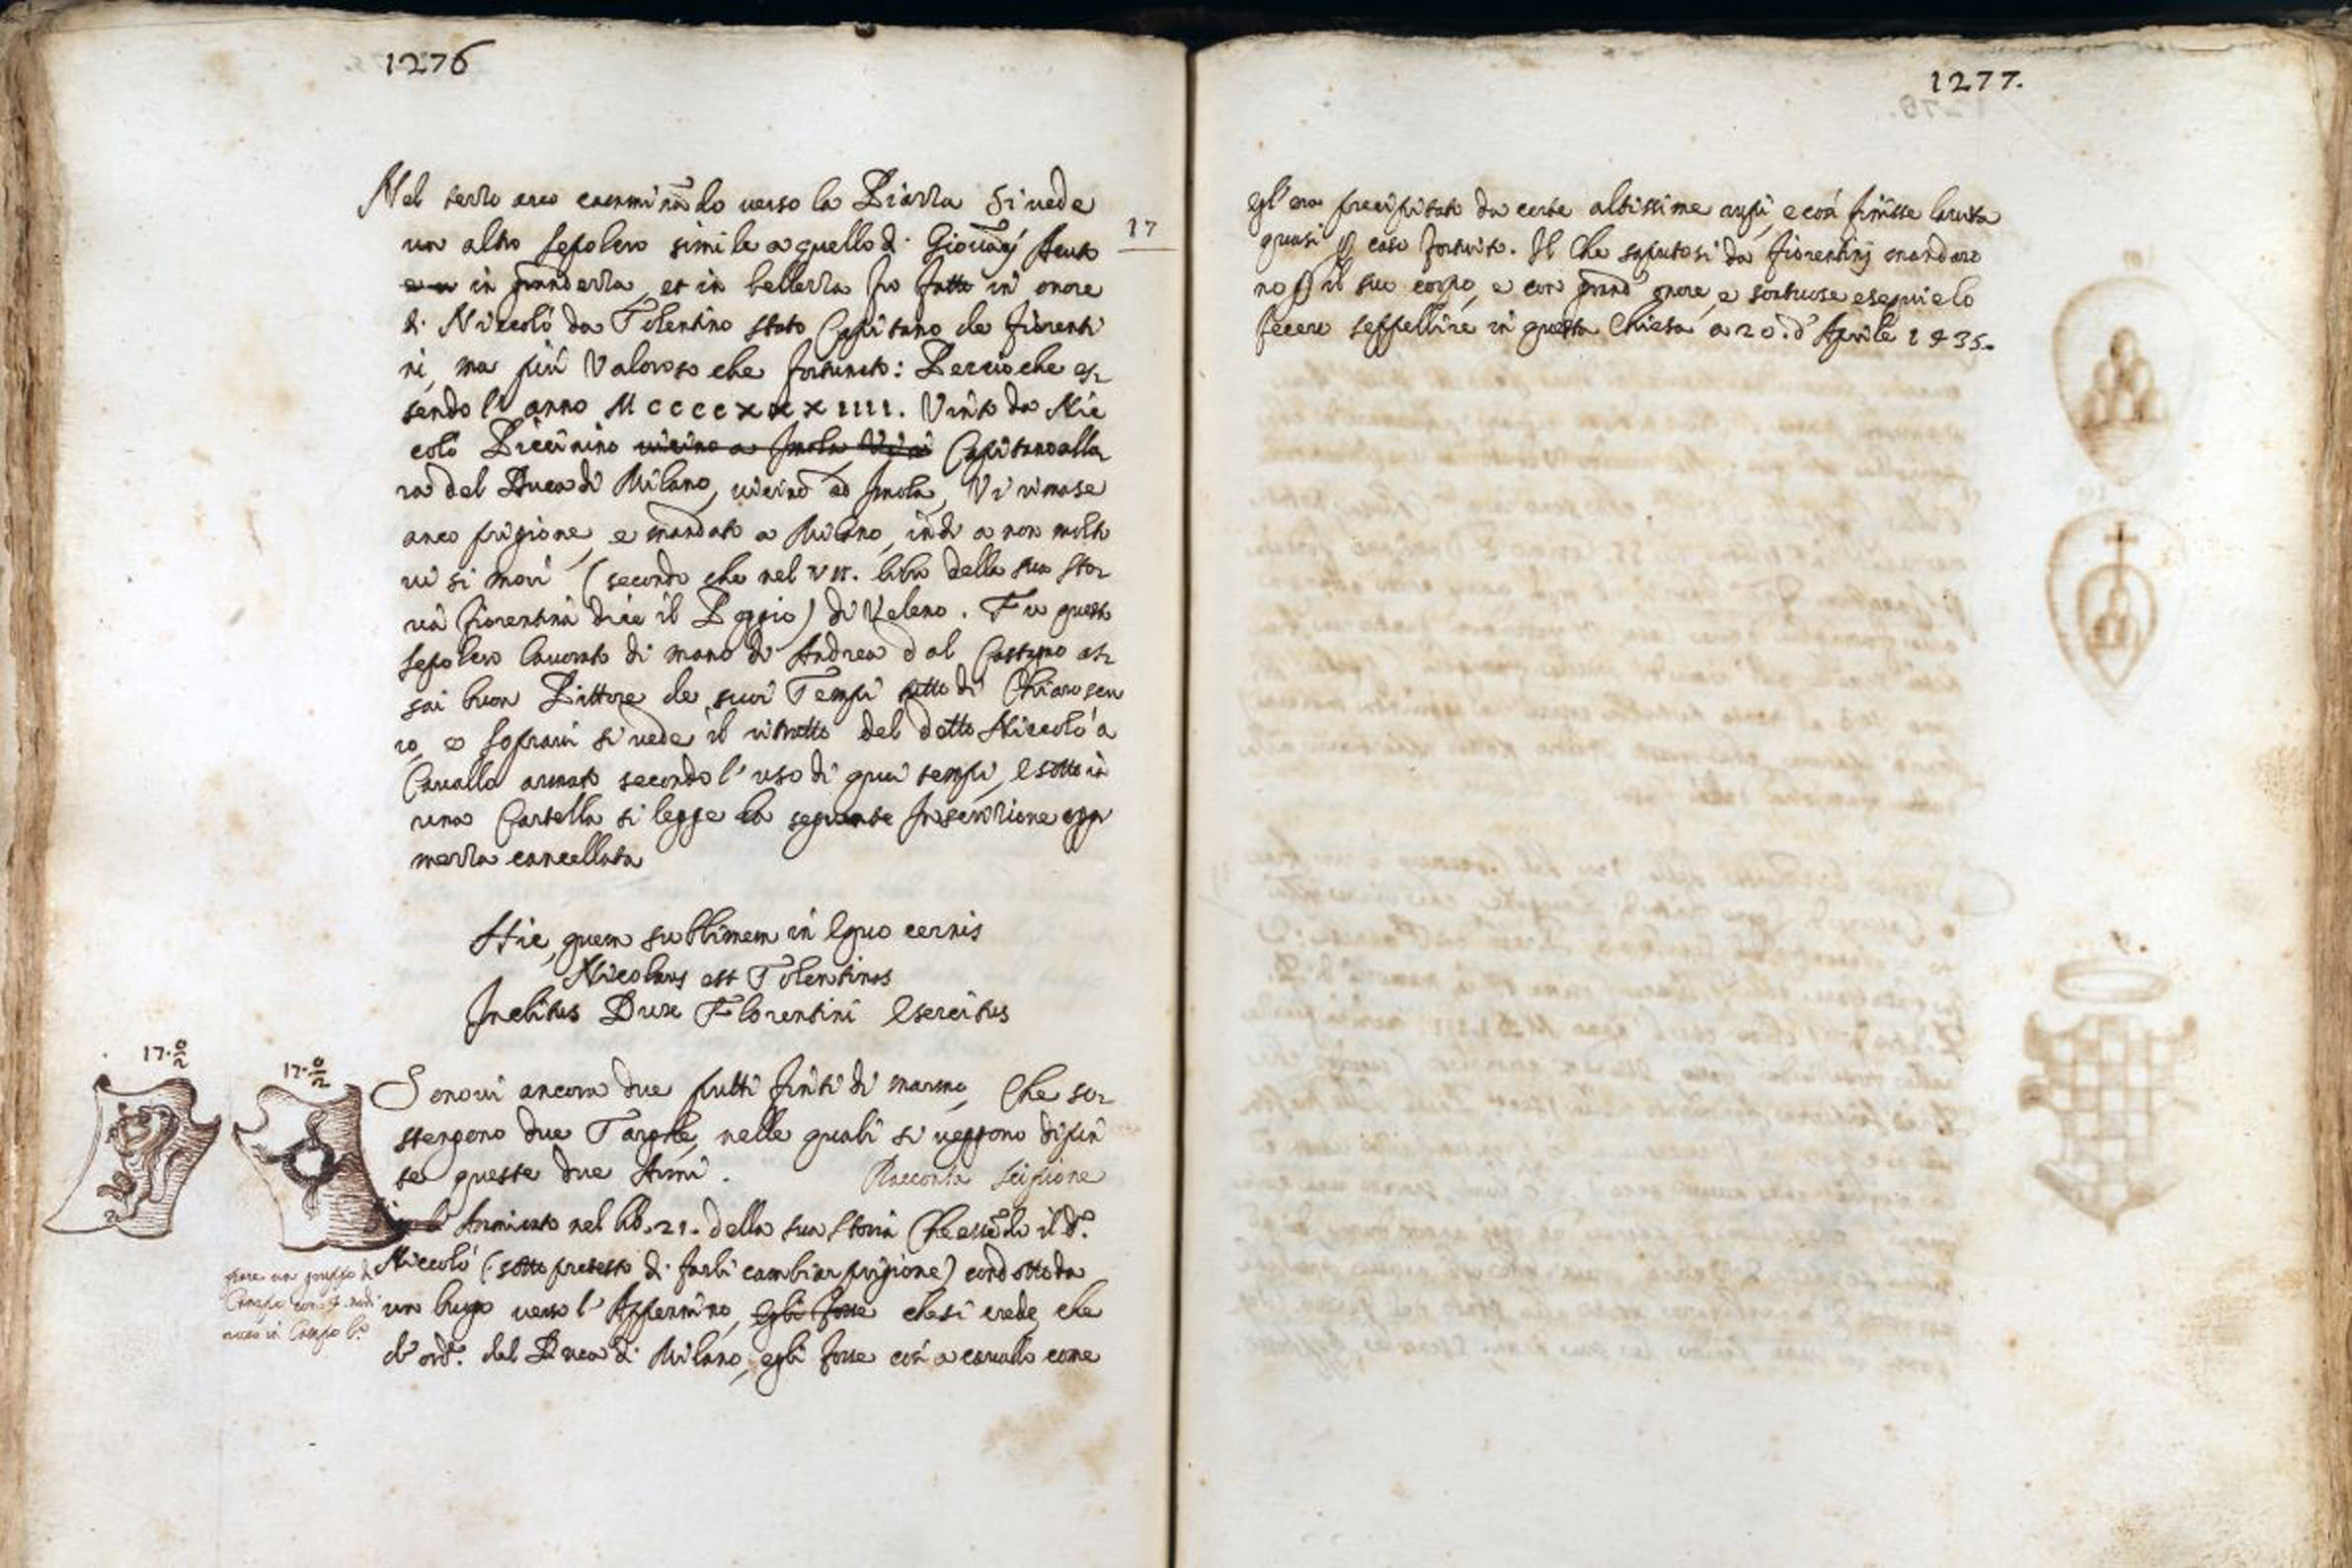 1276
Nel terzo arco camminando verso la Piazza si vede
un altro sepolcro simile a quello di Giovanni Aeuto
in grandezza, et in bellezza fu fatto in onore
di Niccolò da Tolentino stato Capitano de fiorenti
ni, ma più Valoroso che fortunato: Percioche es
sendo l'anno MCCCCXXXIIII. Vinto da Nic
colò Piccinino vicino a Imola Vi ri Capitano allo
ra del Duca di Milano, vicino ad Imola, Vi rimase
anco prigione, e mandato a Milano, indi a non molto
vi si morì (secondo che nel VII. libro della sua sto
ria fiorentina dice il Poggio) di Veleno. Fu questo
sepolcro lavorato di mano di Andrea dal Castagno as
sai buon Pittore de suoi Tempi tutto di Chiaroscu
ro, e sopravi si vede il ritratto del detto Niccolò a
Cavallo armato secondo l'uso di quei tempi, e sotto in
una Cartella si legge la seguente Inscrizione oggi
mezza cancellata
17
Hic, quem sublimem in Equo cernis
Nicolaus est Tolentinas
Inclitus Dux Florentini Esercitus
17.0/2
17.0/2
Sonovi ancora due putti finti di marmo, Che so
stengono due Targhe, nelle quali si veggono dipin
te queste due Armi. Racconta Scipione
Ammirato nel lib. 21. della sua Storia Che essendo il d.º
Niccolò (sotto pretesto di farli cambiar prigione) condotto da
un luogo verso l'Appennino, egli fosse che si crede, che
d'ord.e del Duca di Milano, egli fosse così a cavallo come
pare un gruppo di
Canapa con 4. nodi
in Campo b.º
1277.
egl'era precipitato da certe altissime rupi, e così finisse la vita
quasi p caso fortuito. Il che saputosi da fiorentini mandaro
no p il suo corpo, e con grand'onore, e sontuose esequie lo
fecero seppellire in questa Chiesa a 20. d'Aprile 1435.